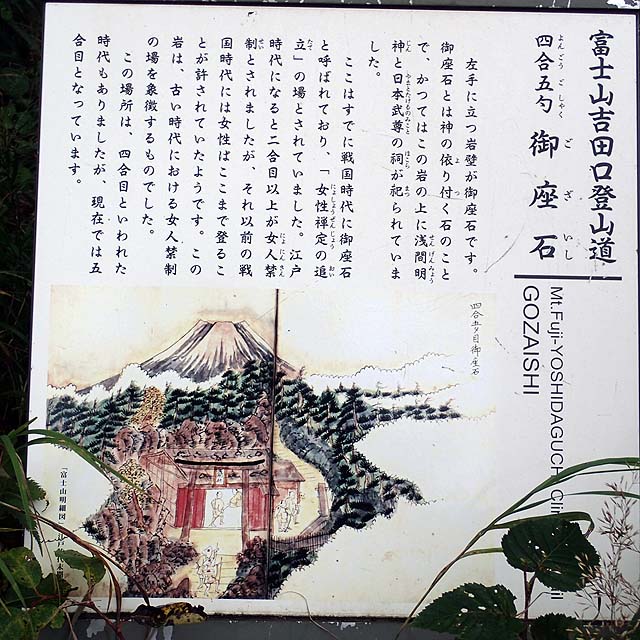 富士山吉田口登山道
四合五勺 御座石
よんごうごしゃく ございし
Mt.Fuji-YOSHIDAGUCHI Cli
GOZAISHI
左手に立つ岩壁が御座石です。
御座石とは神の依り付く石のこと
で、かつてはこの岩の上に浅間明
神と日本武尊の祠が祀られていま
した。
ここはすでに戦国時代に御座石
と呼ばれており、「女性禅定の追
立」の場とされていました。江戸
時代になると二合目以上が女人禁
制とされましたが、それ以前の戦
国時代には女性はここまで登るこ
とが許されていたようです。この
岩は、古い時代における女人禁制
の場を象徴するものでした。
この場所は、四合目といわれた
時代もありましたが、現在では五
合目となっています。
四合五勺目御座石
「富士山明細図」